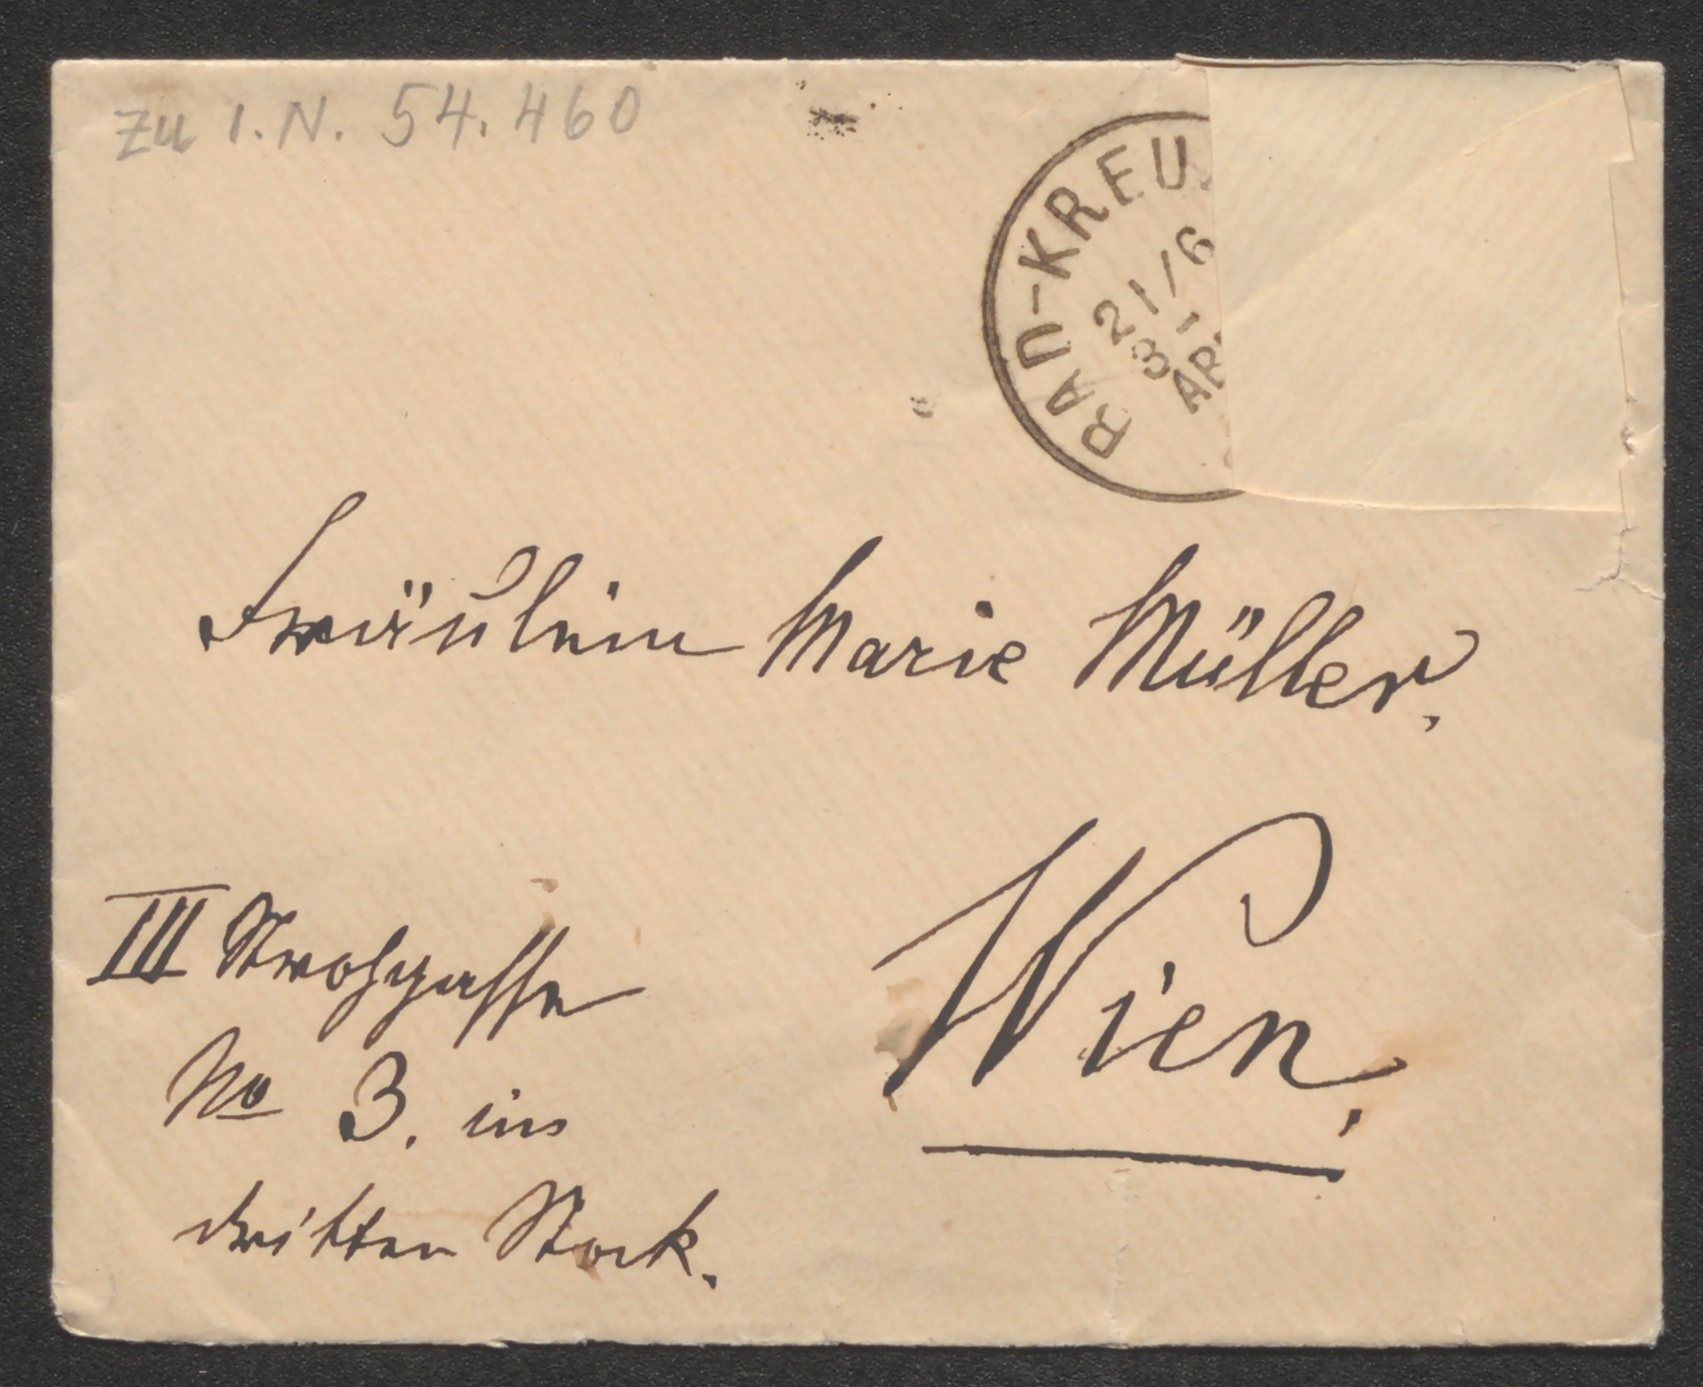 Zu I.N. 54.460
BAD-KREU
21/6
3-
AB
Fräulein Marie Müller.
Wien.
III Strohgasse
No 3. im
dritten Stock.